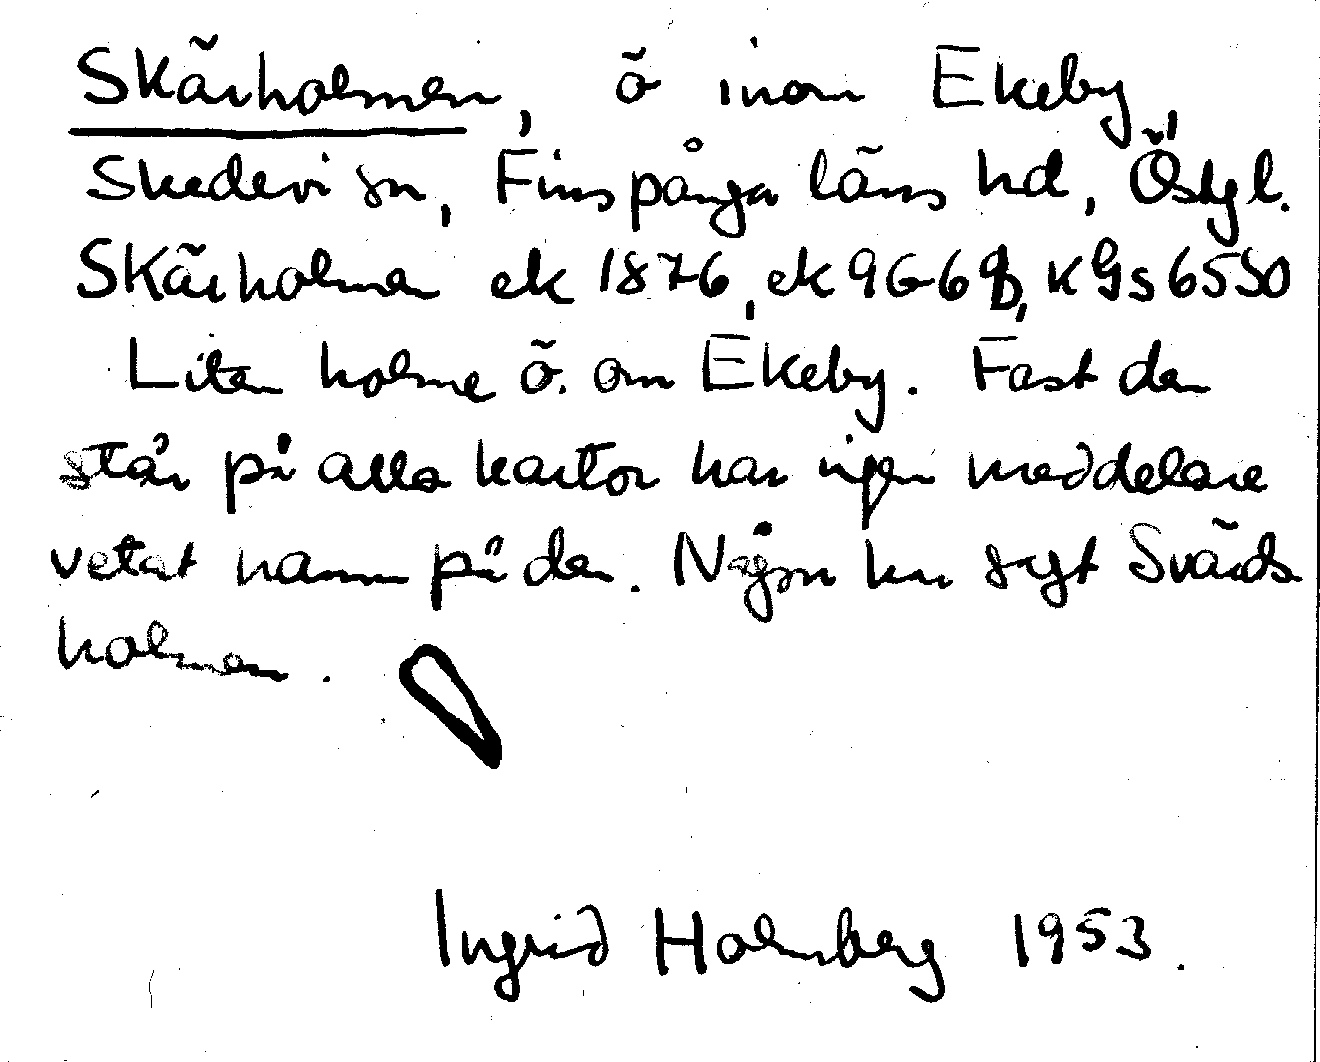 Skärholmen, ö inom Ekeby,
Skedevi sn, Finspånga läns hd, Östgl.
Skärholmen ek 1876, ek 9G6g, kGs 6550
Liten holme ö. om Ekeby. Fast den
står på alla kartor har ingen meddelare
vetat namn på den. Någon har sagt Svärds
holmen.
Ingrid Holmberg 1953.